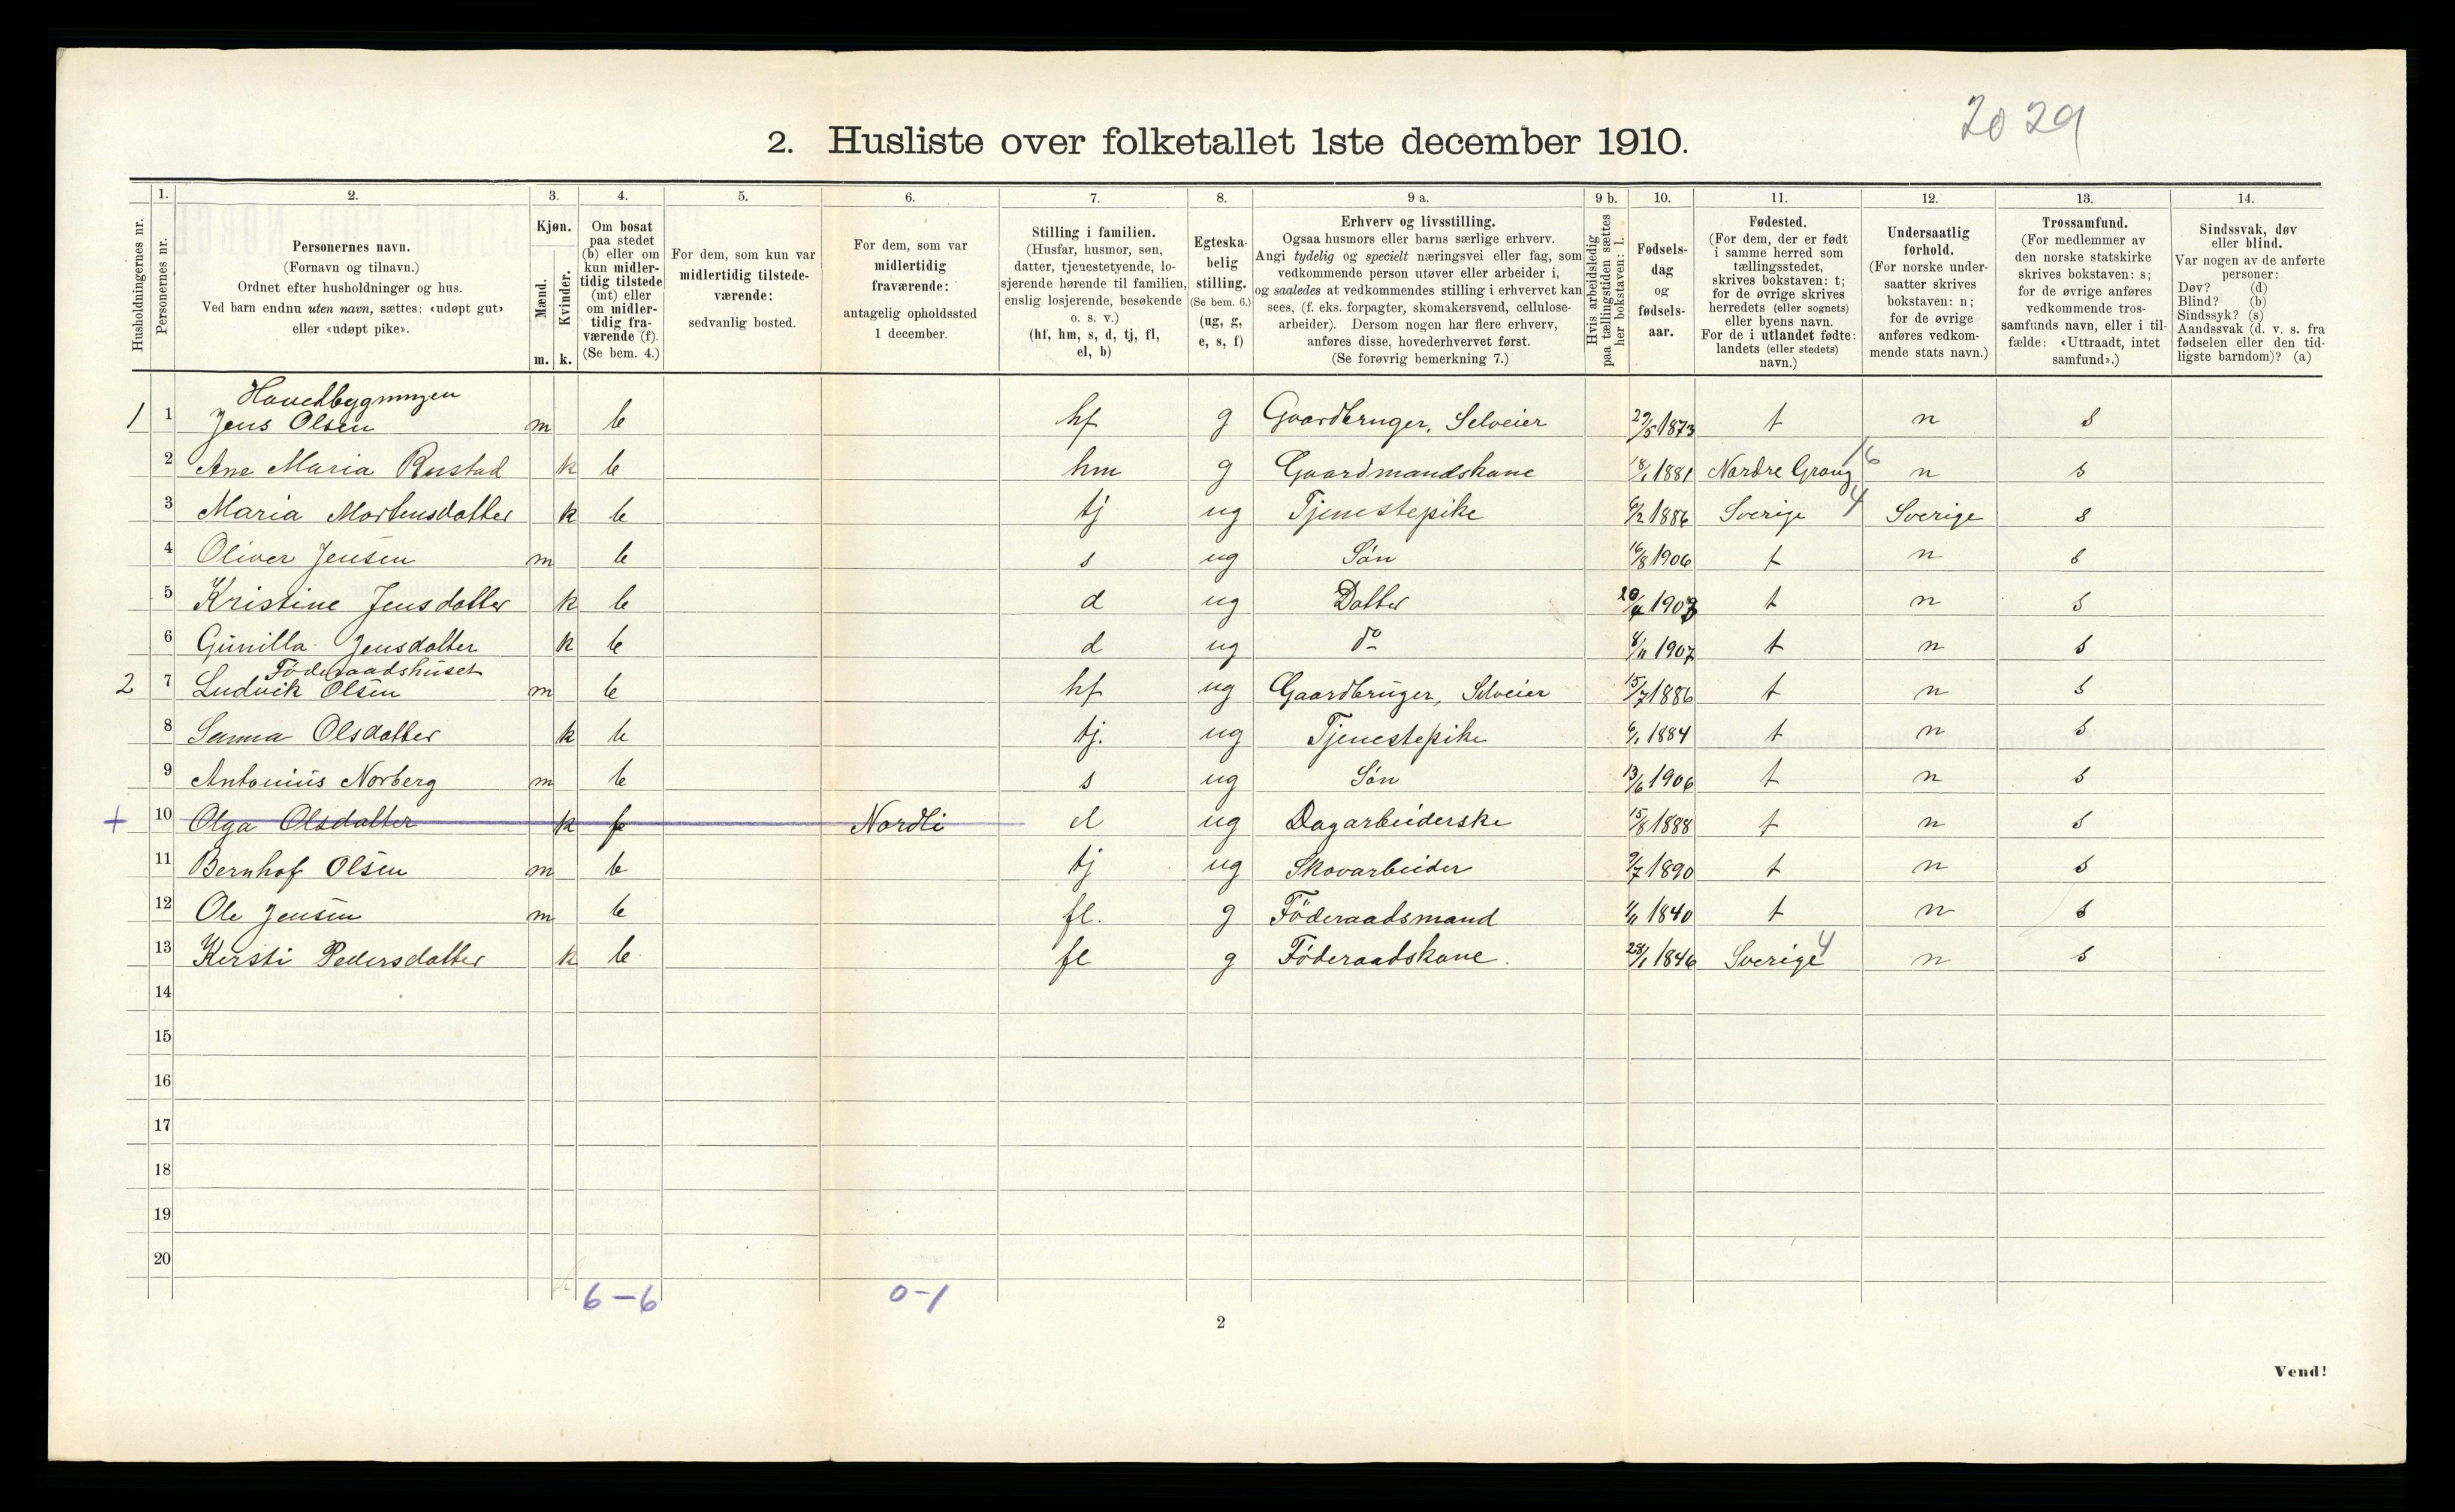 20 29
2. Husliste over folketallet 1ste december 1910.
1. 2. 3. 4. 5. 6. 7. 8. 9 a. 9 b. 10. 11. 12. 13. 14.
Husholdningernes nr.
Personernes nr.
Personernes navn.
(Fornavn og tilnavn.)
Ordnet efter husholdninger og hus.
Ved barn endnu uten navn, sættes: «udøpt gut»
eller «udøpt pike».
Kjøn.
Mænd.
Kvinder.
m. k.
Om bosat
paa stedet
(b) eller om
kun midler-
tidig tilstede
(mt) eller
om midler-
tidig fra-
værende (f).
(Se bem. 4.)
For dem, som kun var
midlertidig tilstede-
værende:
sedvanlig bosted.
For dem, som var
midlertidig
fraværende:
antagelig opholdssted
1 december.
Stilling i familien.
(Husfar, husmor, søn,
datter, tjenestetyende, lo-
sjerende hørende til familien,
enslig losjerende, besøkende
o. s. v.)
(hf, hm, s, d, tj, fl,
el, b)
Egteska-
belig
stilling.
(Se bem. 6.)
(ug, g,
e, s, f)
Erhverv og livsstilling.
Ogsaa husmors eller barns særlige erhverv.
Angi tydelig og specielt næringsvei eller fag, som
vedkommende person utøver eller arbeider i,
og saaledes at vedkommendes stilling i erhvervet kan
sees, (f. eks. forpagter, skomakersvend, cellulose-
arbeider). Dersom nogen har flere erhverv,
anføres disse, hovederhvervet først.
(Se forøvrig bemerkning 7.)
Hvis arbeidsledig
paa tællingstiden sættes
her bokstaven: l.
Fødsels-
dag
og
fødsels-
aar.
Fødested.
(For dem, der er født
i samme herred som
tællingsstedet,
skrives bokstaven: t;
for de øvrige skrives
herredets (eller sognets)
eller byens navn.
For de i utlandet fødte:
landets (eller stedets)
navn.)
Undersaatlig
forhold.
(For norske under-
saatter skrives
bokstaven: n;
for de øvrige
anføres vedkom-
mende stats navn.)
Trossamfund.
(For medlemmer av
den norske statskirke
skrives bokstaven: s;
for de øvrige anføres
vedkommende tros-
samfunds navn, eller i til-
fælde: «Uttraadt, intet
samfund».)
Sindssvak, døv
eller blind.
Var nogen av de anførte
personer:
Døv? (d)
Blind? (b)
Sindssyk? (s)
Aandssvak (d. v. s. fra
fødselen eller den tid-
ligste barndom)? (a)
Hovedbygningen
1 1 Jens Olsen m b hf g Gaardbruger, Selveier 29/5 1873 t n s
2 Ane Maria Rustad k b hm g Gaardmandskone 18/1 1881 Nordre Grong 16 n s
3 Maria Mortensdatter k b tj ug Tjenestepike 6/2 1886 Sverige 4 Sverige s
4 Oliver Jensen m b s ug Sön 16/8 1906 t n s
5 Kristine Jensdatter k b d ug Datter 20/4 1903 t n s
6 Gunilla Jensdatter k b d ug do 8/11 1907 t n s
Föderaadshuset
2 7 Ludvik Olsen m b hf ug Gaardbruger, Selveier 15/7 1886 t n s
8 Sanna Olsdatter k b tj. ug Tjenestepike 6/1 1884 t n s
9 Antonius Norberg m b s ug Sön 13/6 1906 t n s
+ 10 Olga Olsdatter k f Nordli el ug Dagarbeiderske 15/8 1888 t n s
11 Bernhof Olsen m b tj ug Skovarbeider 9/7 1890 t n s
12 Ole Jensen m b fl. g Föderaadsmand 4/11 1840 t n s
13 Kersti Pedersdatter k b fl g Föderaadskone. 28/1 1846 Sverige 4 n s
14
15
16
17
18
19
20
6-6 0-1
2
Vend!